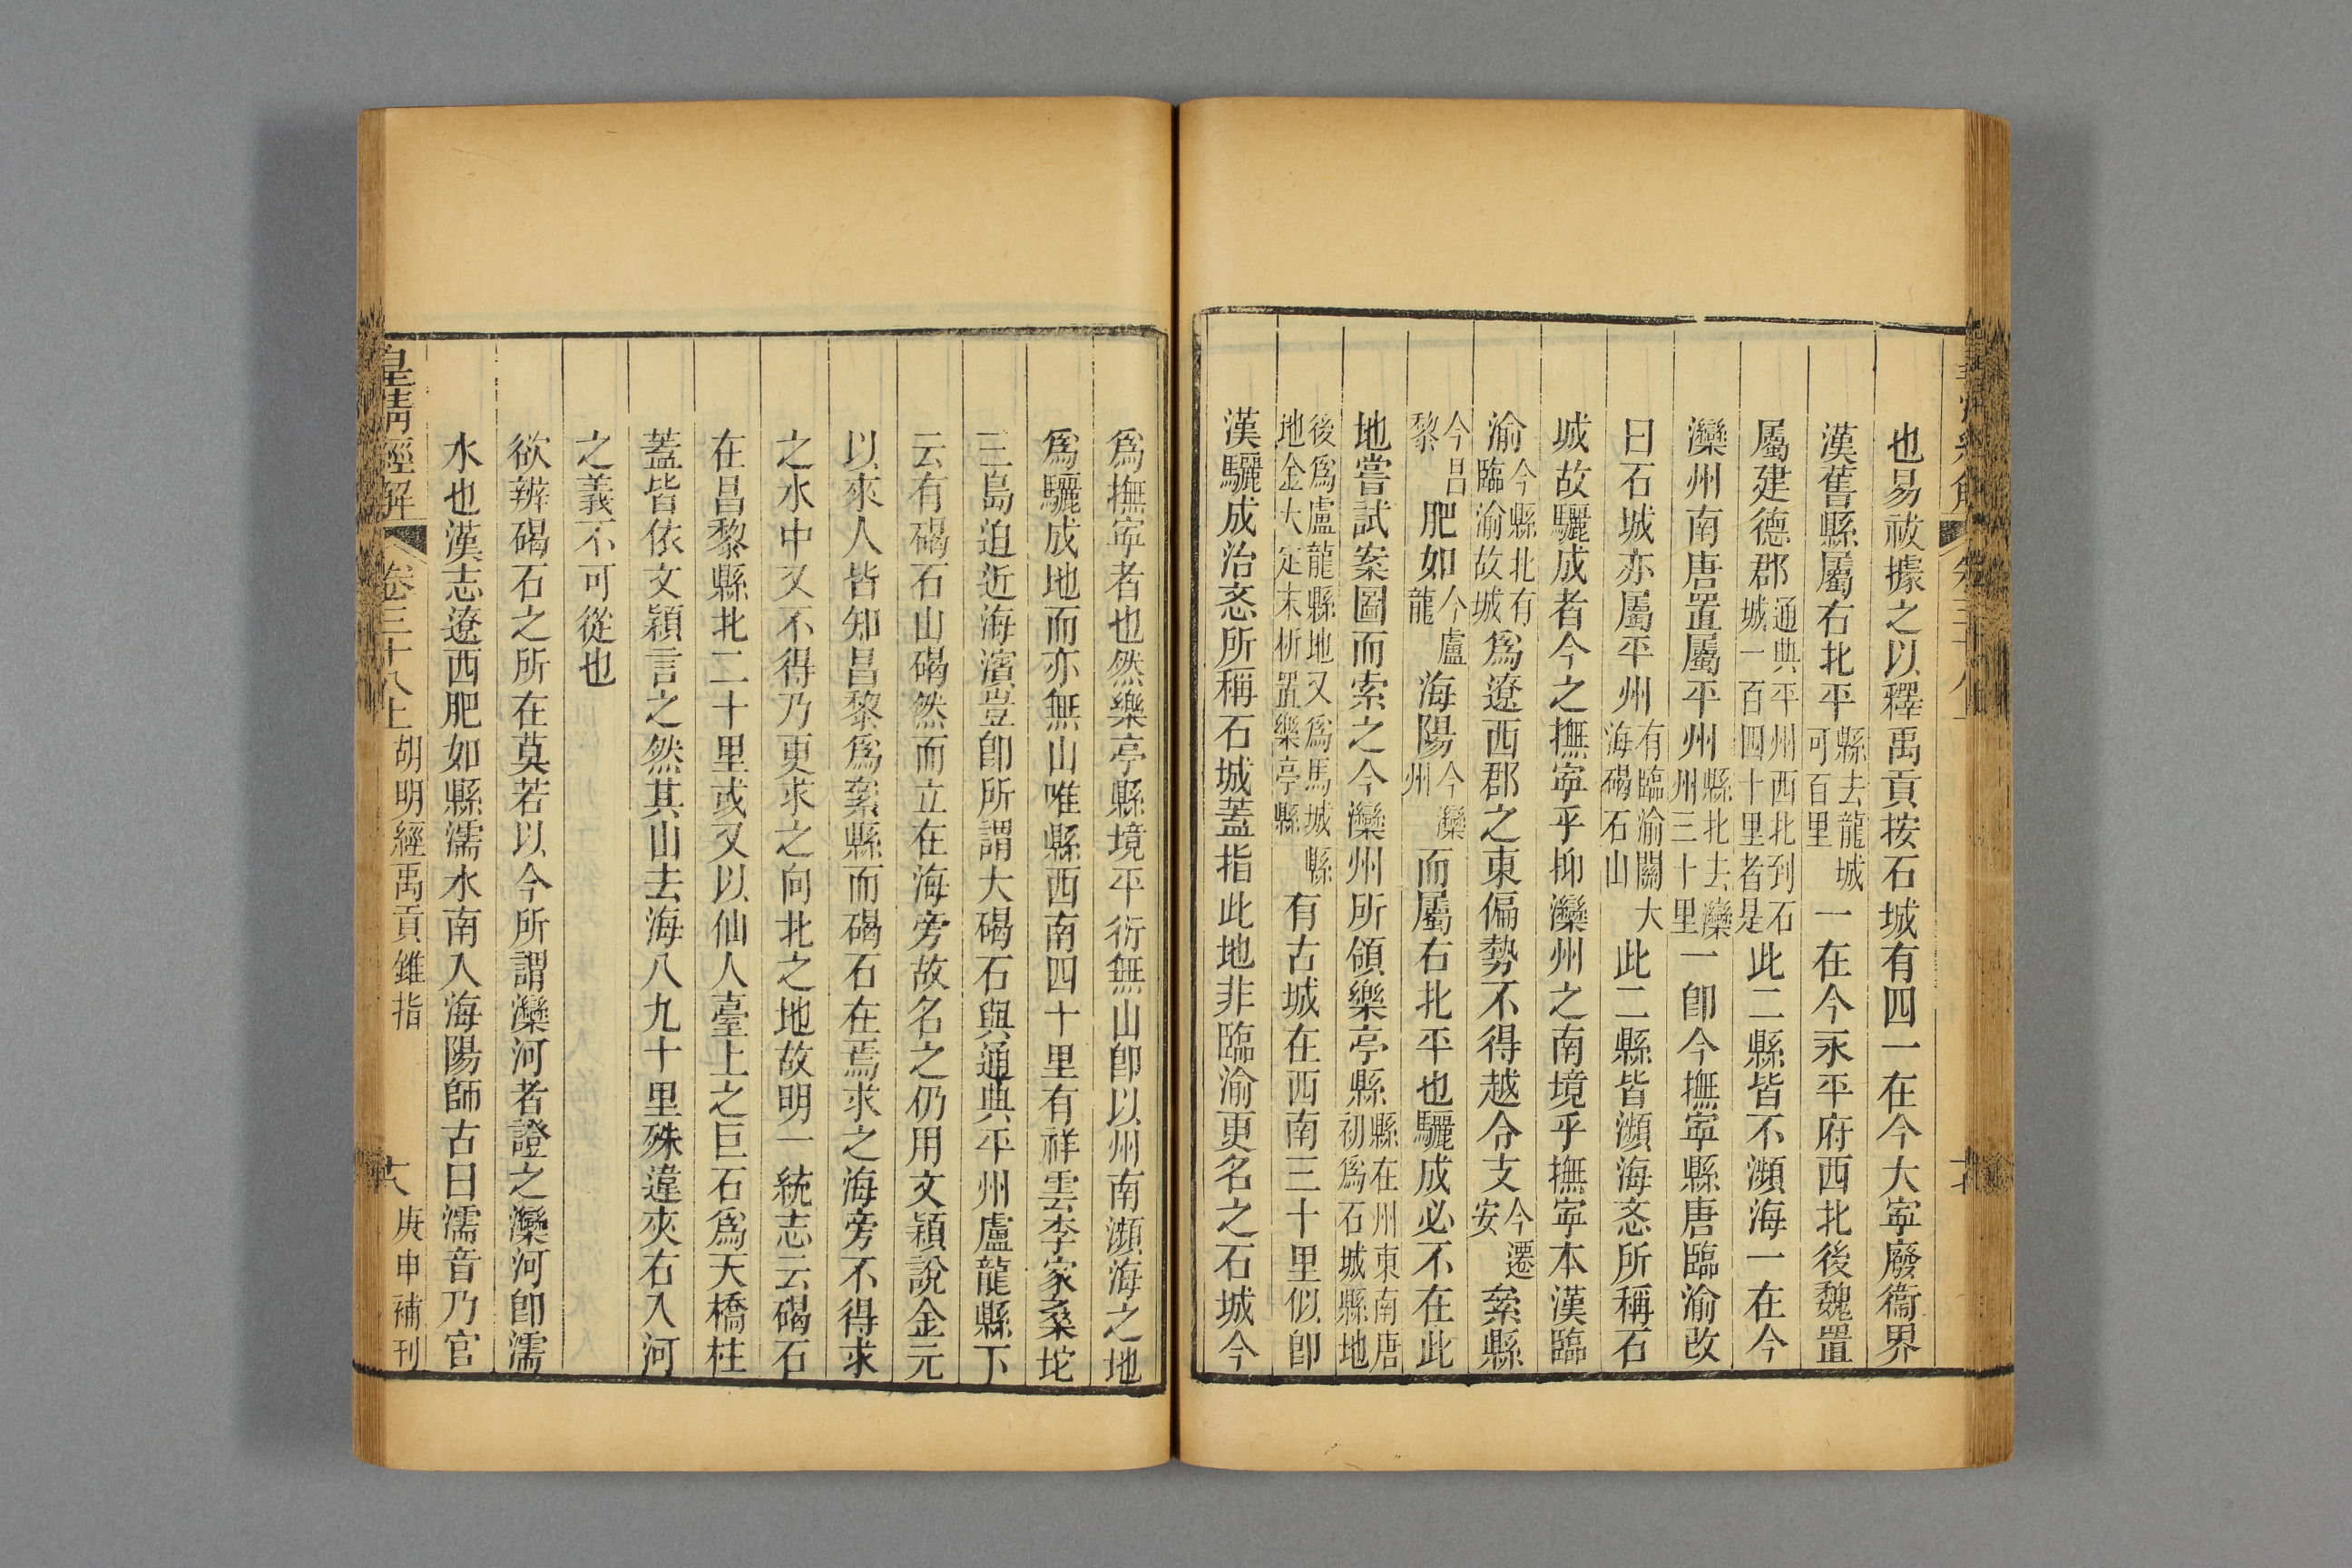 也易祓據之以釋禹貢按石城有四一在今大寧廢衞界
漢舊縣屬右北平縣去龍城可百里一在今永平府西北後魏置
屬建德郡通典平州西北到石城一百四十里者是此二縣皆不瀕海一在今
灤州南唐置屬平州縣北去灤州三十里一卽今撫寧縣唐臨渝改
曰石城亦屬平州有臨渝關大海碣石山此二縣皆瀕海忞所稱石
城故驪成者今之撫寧乎抑灤州之南境乎撫寧本漢臨
渝今縣北有臨渝故城爲遼西郡之東偏勢不得越令支今遷安絫縣
今昌黎肥如今盧龍海陽今灤州而屬右北平也驪成必不在此
地嘗試案圖而索之今灤州所領樂亭縣縣在州東南唐初爲石城縣地
後爲盧龍縣地又爲馬城縣地金大定末析置樂亭縣有古城在西南三十里似卽
漢驪成治忞所稱石城蓋指此地非臨渝更名之石城今
爲撫寧者也然樂亭縣境平衍無山卽以州南瀕海之地
爲驪成地而亦無山唯縣西南四十里有祥雲李家桑坨
三島迫近海濱豈卽所謂大碣石與通典平州盧龍縣下
云有碣石山碣然而立在海旁故名之仍用文穎說金元
以來人皆知昌黎爲絫縣而碣石在焉求之海旁不得求
之水中又不得乃更求之向北之地故明一統志云碣石
在昌黎縣北二十里或又以仙人臺上之巨石爲天橋柱
蓋皆依文穎言之然其山去海八九十里殊違夾右入河
之義不可從也
欲辨碣石之所在莫若以今所謂灤河者證之灤河卽濡
水也漢志遼西肥如縣濡水南入海陽師古曰濡音乃官
皇淸經解 卷三十八上 胡明經禹貢錐指 十八 庚申補刊